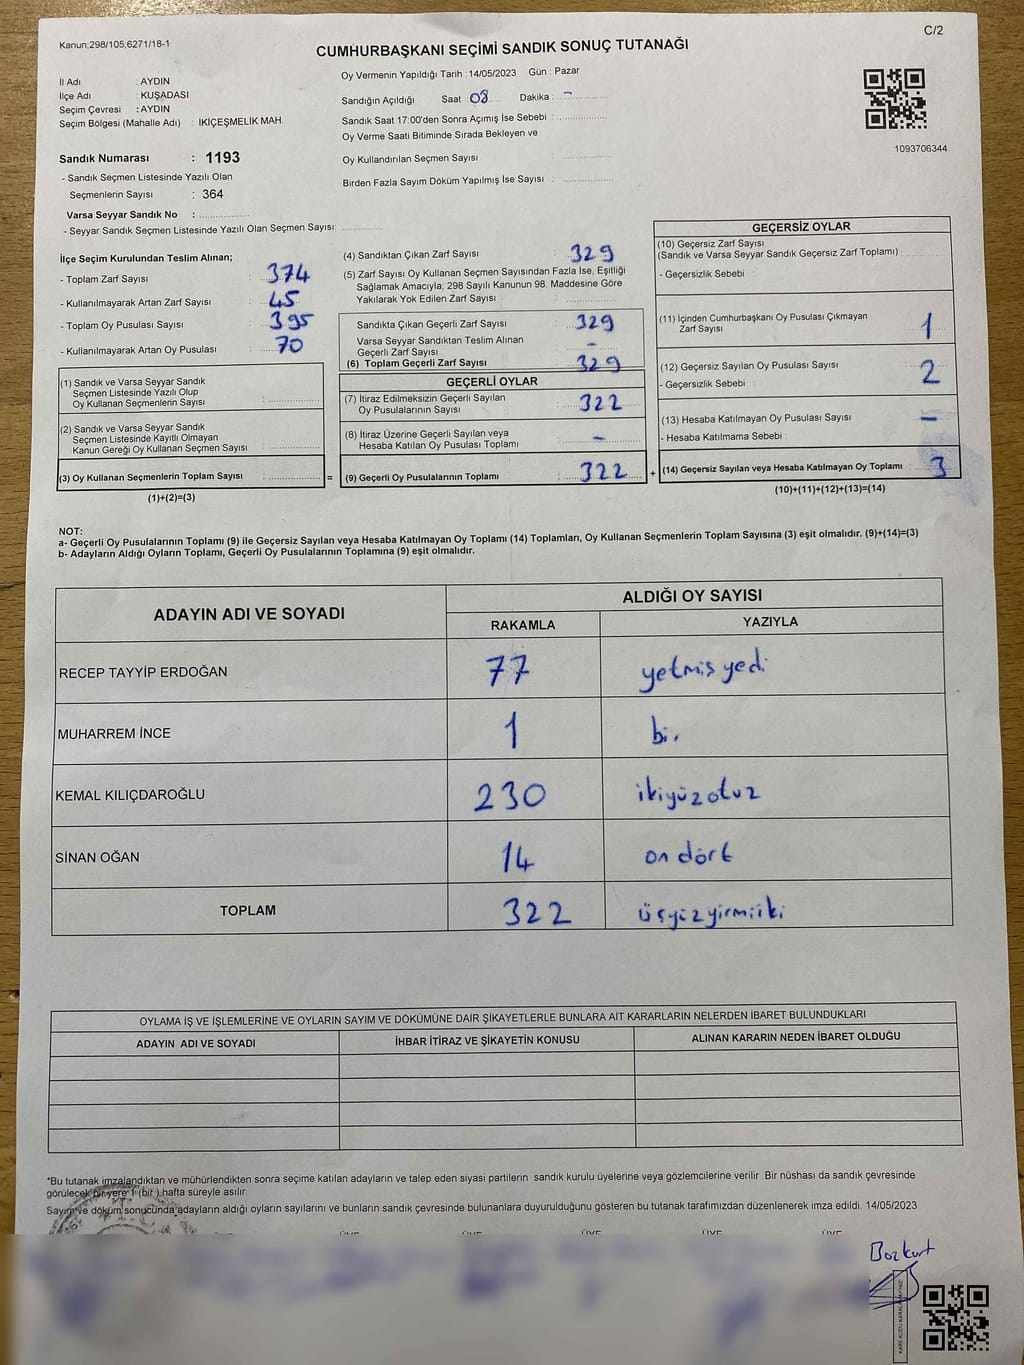 Kanun;298/105,6271/18-1
C/2
CUMHURBAŞKANI SEÇİMİ SANDIK SONUÇ TUTANAĞI
İl Adı : AYDIN
İlçe Adı : KUŞADASI
Seçim Çevresi : AYDIN
Seçim Bölgesi (Mahalle Adı) : İKİÇEŞMELİK MAH.
Oy Vermenin Yapıldığı Tarih : 14/05/2023 Gün : Pazar
Sandığın Açıldığı Saat 08 Dakika : -
Sandık Saat 17:00'den Sonra Açımış İse Sebebi :
Oy Verme Saati Bitiminde Sırada Bekleyen ve
Oy Kullandırılan Seçmen Sayısı :
Birden Fazla Sayım Döküm Yapılmış İse Sayısı :
1093706344
Sandık Numarası : 1193
- Sandık Seçmen Listesinde Yazılı Olan
Seçmenlerin Sayısı : 364
Varsa Seyyar Sandık No :
- Seyyar Sandık Seçmen Listesinde Yazılı Olan Seçmen Sayısı:
İlçe Seçim Kurulundan Teslim Alınan;
- Toplam Zarf Sayısı : 374
- Kullanılmayarak Artan Zarf Sayısı : 45
- Toplam Oy Pusulası Sayısı : 395
- Kullanılmayarak Artan Oy Pusulası : 70
(1) Sandık ve Varsa Seyyar Sandık
Seçmen Listesinde Yazılı Olup
Oy Kullanan Seçmenlerin Sayısı :
(2) Sandık ve Varsa Seyyar Sandık
Seçmen Listesinde Kayıtlı Olmayan
Kanun Gereği Oy Kullanan Seçmen Sayısı :
(3) Oy Kullanan Seçmenlerin Toplam Sayısı : =
(1)+(2)=(3)
(4) Sandıktan Çıkan Zarf Sayısı : 329
(5) Zarf Sayısı Oy Kullanan Seçmen Sayısından Fazla İse, Eşitliği
Sağlamak Amacıyla; 298 Sayılı Kanunun 98. Maddesine Göre
Yakılarak Yok Edilen Zarf Sayısı :
Sandıkta Çıkan Geçerli Zarf Sayısı : 329
Varsa Seyyar Sandıktan Teslim Alınan
Geçerli Zarf Sayısı : -
(6) Toplam Geçerli Zarf Sayısı : 329
GEÇERLİ OYLAR
(7) İtiraz Edilmeksizin Geçerli Sayılan
Oy Pusulalarının Sayısı : 322
(8) İtiraz Üzerine Geçerli Sayılan veya
Hesaba Katılan Oy Pusulası Toplamı : -
(9) Geçerli Oy Pusulalarının Toplamı : 322 +
GEÇERSİZ OYLAR
(10) Geçersiz Zarf Sayısı
(Sandık ve Varsa Seyyar Sandık Geçersiz Zarf Toplamı) :
- Geçersizlik Sebebi :
(11) İçinden Cumhurbaşkanı Oy Pusulası Çıkmayan
Zarf Sayısı : 1
(12) Geçersiz Sayılan Oy Pusulası Sayısı : 2
- Geçersizlik Sebebi
(13) Hesaba Katılmayan Oy Pusulası Sayısı : -
- Hesaba Katılmama Sebebi :
(14) Geçersiz Sayılan veya Hesaba Katılmayan Oy Toplamı : 3
(10)+(11)+(12)+(13)=(14)
NOT:
a- Geçerli Oy Pusulalarının Toplamı (9) ile Geçersiz Sayılan veya Hesaba Katılmayan Oy Toplamı (14) Toplamları, Oy Kullanan Seçmenlerin Toplam Sayısına (3) eşit olmalıdır. (9)+(14)=(3)
b- Adayların Aldığı Oyların Toplamı, Geçerli Oy Pusulalarının Toplamına (9) eşit olmalıdır.
ADAYIN ADI VE SOYADI
ALDIĞI OY SAYISI
RAKAMLA YAZIYLA
RECEP TAYYİP ERDOĞAN 77 yetmis yedi
MUHARREM İNCE 1 bir
KEMAL KILIÇDAROĞLU 230 ikiyüzotuz
SİNAN OĞAN 14 on dört
TOPLAM 322 üçyüzyirmiiki
OYLAMA İŞ VE İŞLEMLERİNE VE OYLARIN SAYIM VE DÖKÜMÜNE DAİR ŞİKAYETLERLE BUNLARA AİT KARARLARIN NELERDEN İBARET BULUNDUKLARI
ADAYIN ADI VE SOYADI İHBAR İTİRAZ VE ŞİKAYETİN KONUSU ALINAN KARARIN NEDEN İBARET OLDUĞU
*Bu tutanak imzalandıktan ve mühürlendikten sonra seçime katılan adayların ve talep eden siyasi partilerin sandık kurulu üyelerine veya gözlemcilerine verilir. Bir nüshası da sandık çevresinde
görülecek bir yere 1 (bir ) hafta süreyle asılır.
Sayım ve döküm sonucunda,adayların aldığı oyların sayılarını ve bunların sandık çevresinde bulunanlara duyurulduğunu gösteren bu tutanak tarafımızdan düzenlenerek imza edildi. 14/05/2023
ÜYE ÜYE ÜYE ÜYE ÜYE
Bozkurt